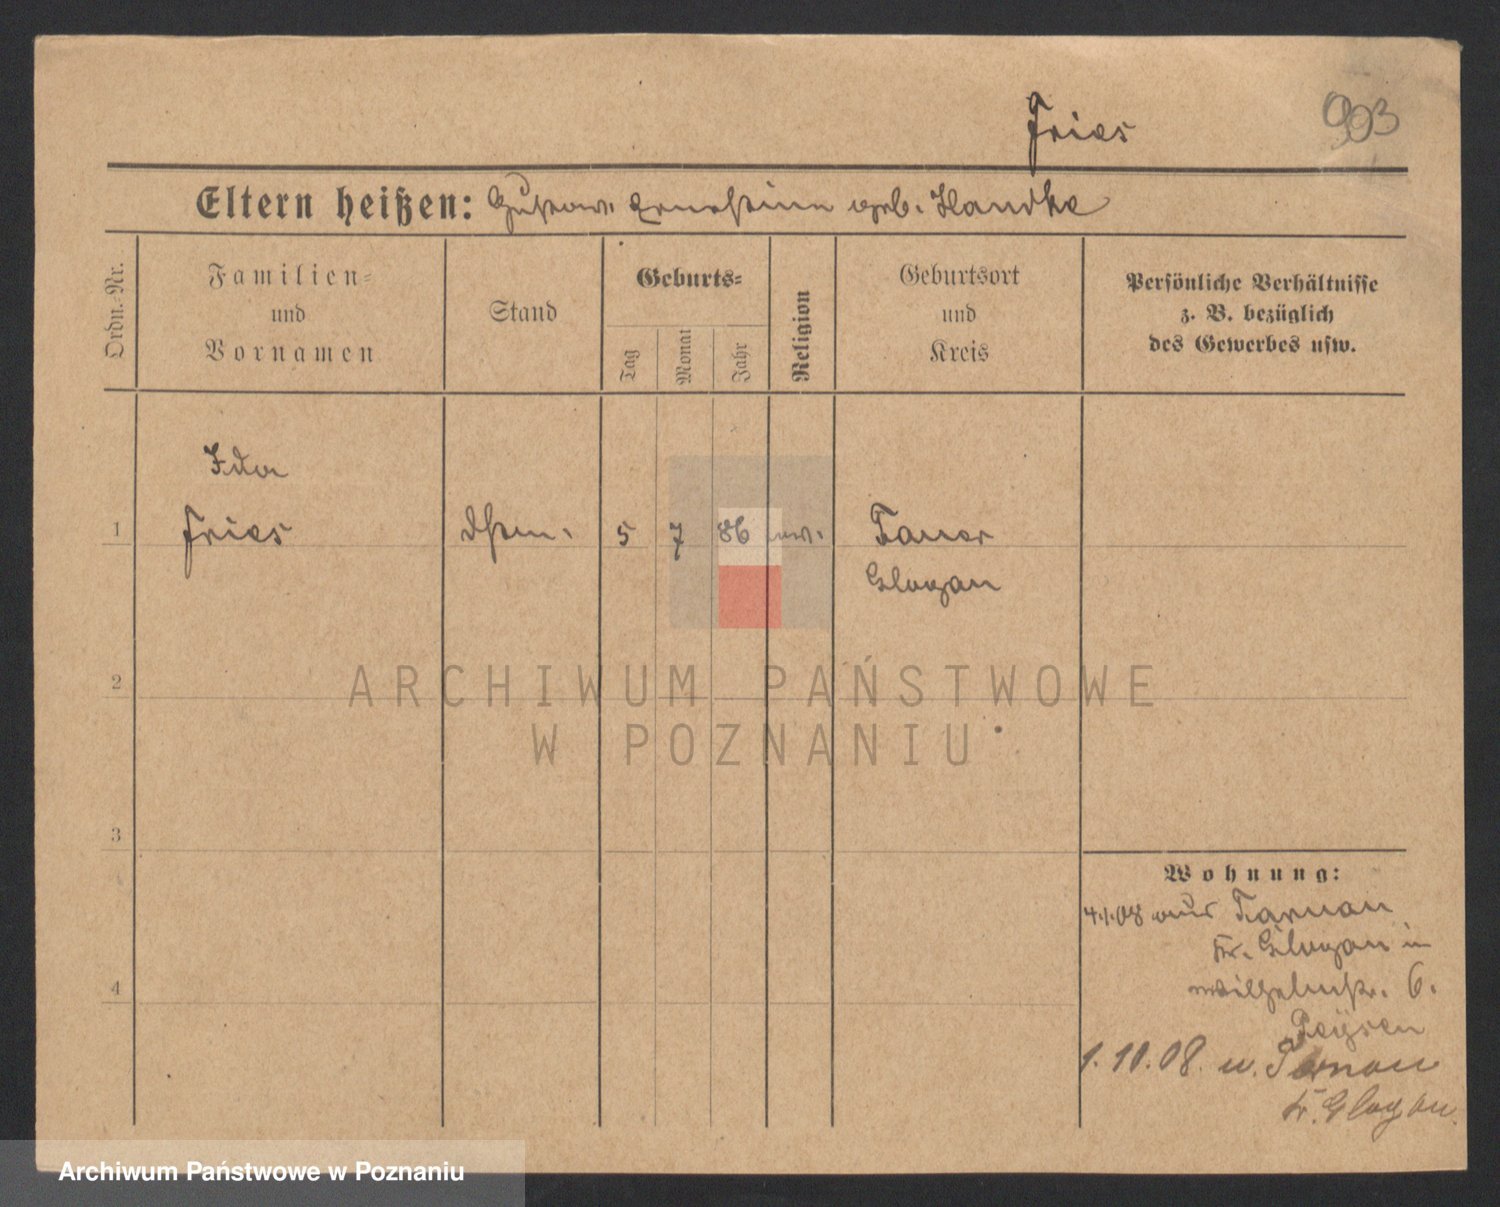 Fries 993
Eltern heißen: Gustav. Ernestine geb. Handke
Ordn.-Nr.
Familien-
und
Vornamen
Stand
Geburts-
Tag
Monat
Jahr
Religion
Geburtsort
und
Kreis
Persönliche Verhältnisse
z. B. bezüglich
des Gewerbes usw.
Ida
1 Fries 5 7 86 ev.
Glogau
2
ARCHIWUM PAŃSTWOWE
W POZNANIU
3
4
Wohnung:
4.1.08 aus Tarnau
Kr. Glogau in
Wilhelmstr. 6.
1.10.08. n. Tarnau
Kr. Glogau.
Archiwum Państwowe w Poznaniu